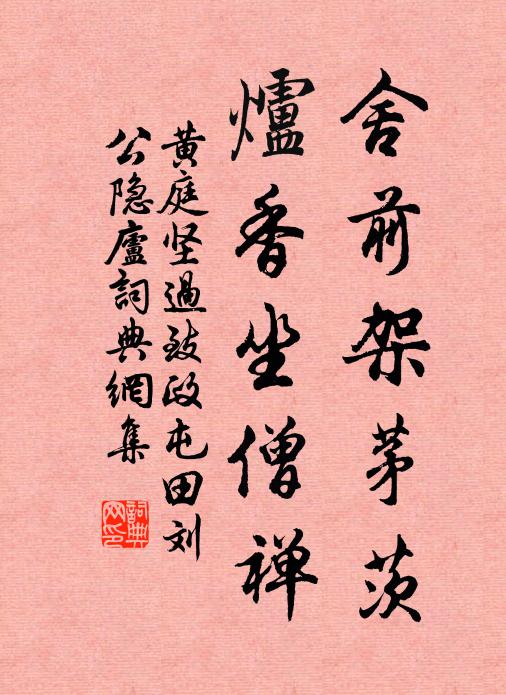 舍前架茅茨
爐香坐僧禅
黄庭坚過致政屯田刘
公隐廬詞典網集
詞典
网印